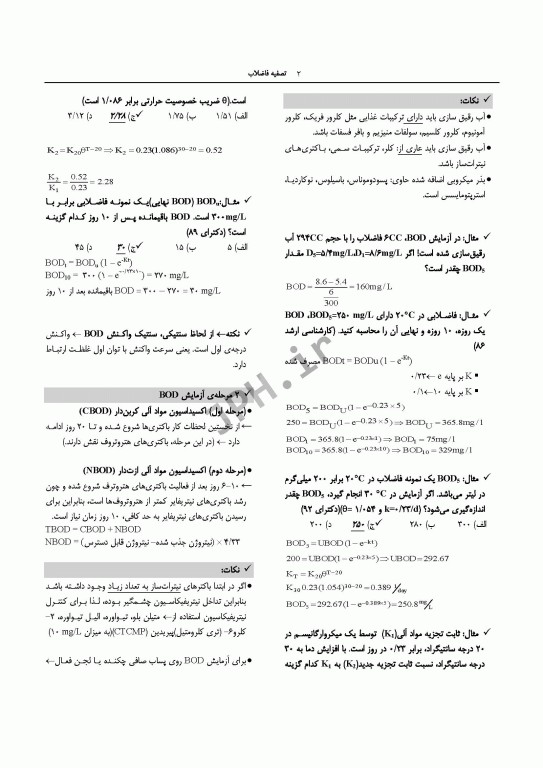 ۲ تصفیه فاضلاب
✓ نکات:
● آب رقیق سازی باید دارای ترکیبات غذایی مثل کلرور فریک، کلرور
آمونیوم، کلرور کلسیم، سولفات منیزیم و بافر فسفات باشد.
● آب رقیق سازی باید عاری از: کلر، ترکیبات سمی، باکتری‌های
نیترات‌ساز باشد.
● بذر میکروبی اضافه شده حاوی: پسودوموناس، باسیلوس، نوکاردیا،
استرپتومایسس است.
✓ مثال: در آزمایش BOD، ۶CC فاضلاب را با حجم ۲۹۴CC آب
رقیق‌سازی شده است! اگر D₁=۸/۶mg/L، D₅=۵/۴mg/L مقدار
BOD₅ چقدر است؟
BOD = (8.6 − 5.4) / (6/300) = 160mg / L
✓ مثال: فاضلابی در ۲۰°C دارای BOD₅=۲۵۰ mg/L، BOD
یک روزه، ۱۰ روزه و نهایی آن را محاسبه کنید. (کارشناسی ارشد
۸۶)
BODt = BODu (1 – e^-Kt) مصرف شده
▪ K بر پایه e ← ۰/۲۳
▪ K بر پایه ۱۰ ← ۰/۱
BOD₅ = BOD_U (1−e^−0.23×5)
250 = BOD_U (1−e^−0.23×5) ⇒ BOD_U = 365.8mg / l
BOD₁ = 365.8(1−e^−0.23×1) ⇒ BOD₁ = 75mg / l
BOD₁₀ = 365.8(1−e^−0.23×10) ⇒ BOD₁₀ = 329mg / l
✓ مثال: BOD₅ یک نمونه فاضلاب در ۲۰°C برابر ۲۰۰ میلی‌گرم
در لیتر می‌باشد. اگر آزمایش در ۳۰ °C انجام گیرد، BOD₅ چقدر
اندازه‌گیری می‌شود؟ (k=۰/۲۳/d و ۱/۰۵۴ =θ)(دکترای ۹۲)
الف) ۳۰۰ ب) ۲۸۰ ✓ج) ۲۵۰ د) ۲۰۰
BOD₅ = UBOD (1−e^−kt)
200 = UBOD(1−e^−0.23×5) ⇒ UBOD = 292.67
K_T = K₂₀θ^T−20
K₃₀ 0.23(1.054)^30−20 = 0.389 /day
BOD₅ = 292.67(1−e^−0.389×5) = 250.8 mg/L
✓ مثال: ثابت تجزیه مواد آلی(K₁) توسط یک میکروارگانیسم در
۲۰ درجه سانتیگراد، برابر ۰/۲۳ در روز است. با افزایش دما به ۳۰
درجه سانتیگراد، نسبت ثابت تجزیه جدید(K₂) به K₁ کدام گزینه
است.(θ ضریب خصوصیت حرارتی برابر ۱/۰۸۶ است)
الف) ۱/۵۱ ب) ۱/۷۵ ✓ج) ۲/۲۸ د) ۳/۱۲
K₂ = K₂₀θ^T−20 ⇒ K₂ = 0.23(1.086)^30−20 = 0.52
K₂/K₁ = 0.52/0.23 = 2.28
✓ مثال: BODu (BOD نهایی)یک نمونه فاضلابی برابر با
۳۰۰mg/L است. BOD باقیمانده پس از ۱۰ روز کدام گزینه
است؟ (دکترای ۸۹)
الف) ۵ ب) ۱۵ ✓ج) ۳۰ د) ۴۵
BODt = BODu (1 – e^-Kt)
BOD10 = ۳۰۰ (۱ – e^-۰/۲۳×۱۰) = ۲۷۰ mg/L
BOD = ۳۰۰ – ۲۷۰ = ۳۰ mg/L باقیمانده بعد از ۱۰ روز
✓ نکته← از لحاظ سنتیکی، سنتیک واکنش BOD ← واکنش
درجه‌ی اول است. یعنی سرعت واکنش با توان اول غلظت ارتباط
دارد.
✓ ۲ مرحله‌ی آزمایش BOD
● (مرحله اول) اکسیداسیون مواد آلی کربن‌دار (CBOD)
← از نخستین لحظات کار باکتری‌ها شروع شده و تا ۲۰ روز ادامه
دارد ← (در این مرحله، باکتری‌های هتروتروف نقش دارند.)
● (مرحله دوم) اکسیداسیون مواد آلی ازت‌دار (NBOD)
← ۱۰–۶ روز بعد از فعالیت باکتری‌های هتروترف شروع شده و چون
رشد باکتری‌های نیتریفایر کمتر از هتروتروف‌ها است، بنابراین برای
رسیدن باکتری‌های نیتریفایر به حد کافی، ۱۰ روز زمان نیاز است.
TBOD = CBOD + NBOD
NBOD = (نیتروژن جذب شده– نیتروژن قابل دسترس) × ۴/۳۳
✓ نکات:
● اگر در ابتدا باکترهای نیترات‌ساز به تعداد زیاد وجود داشته باشد
بنابراین تداخل نیتریفیکاسیون چشمگیر بوده، لذا برای کنترل
نیتریفیکاسیون استفاده از← متیلن بلو، تیواوره، الیل تیواوره، ۲–
کلرو۶– (تری کلرومتیل)پیریدین (CTCMP)(به میزان ۱۰ mg/L)
● برای آزمایش BOD روی پساب صافی چکنده یا لجن فعال←
JPH.ir